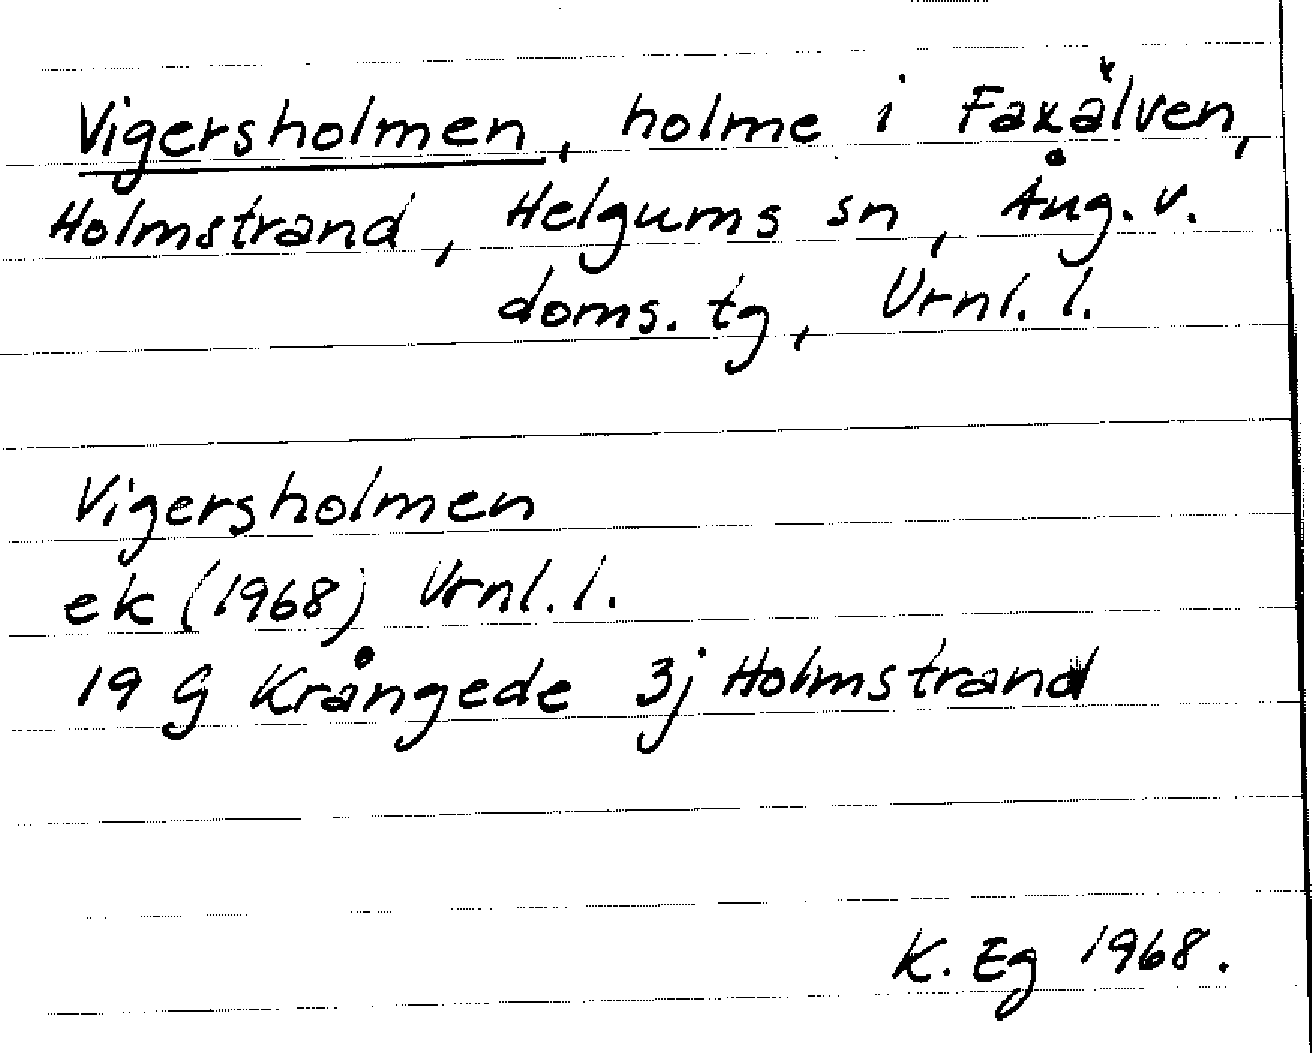 Vigersholmen, holme i Faxälven,
Holmstrand, Helgums sn, Ång. v.
doms. tg, Vrnl. l.
Vigersholmen
ek (1968) Vrnl. l.
19 G Krångede 3j Holmstrand
K. Eg 1968.